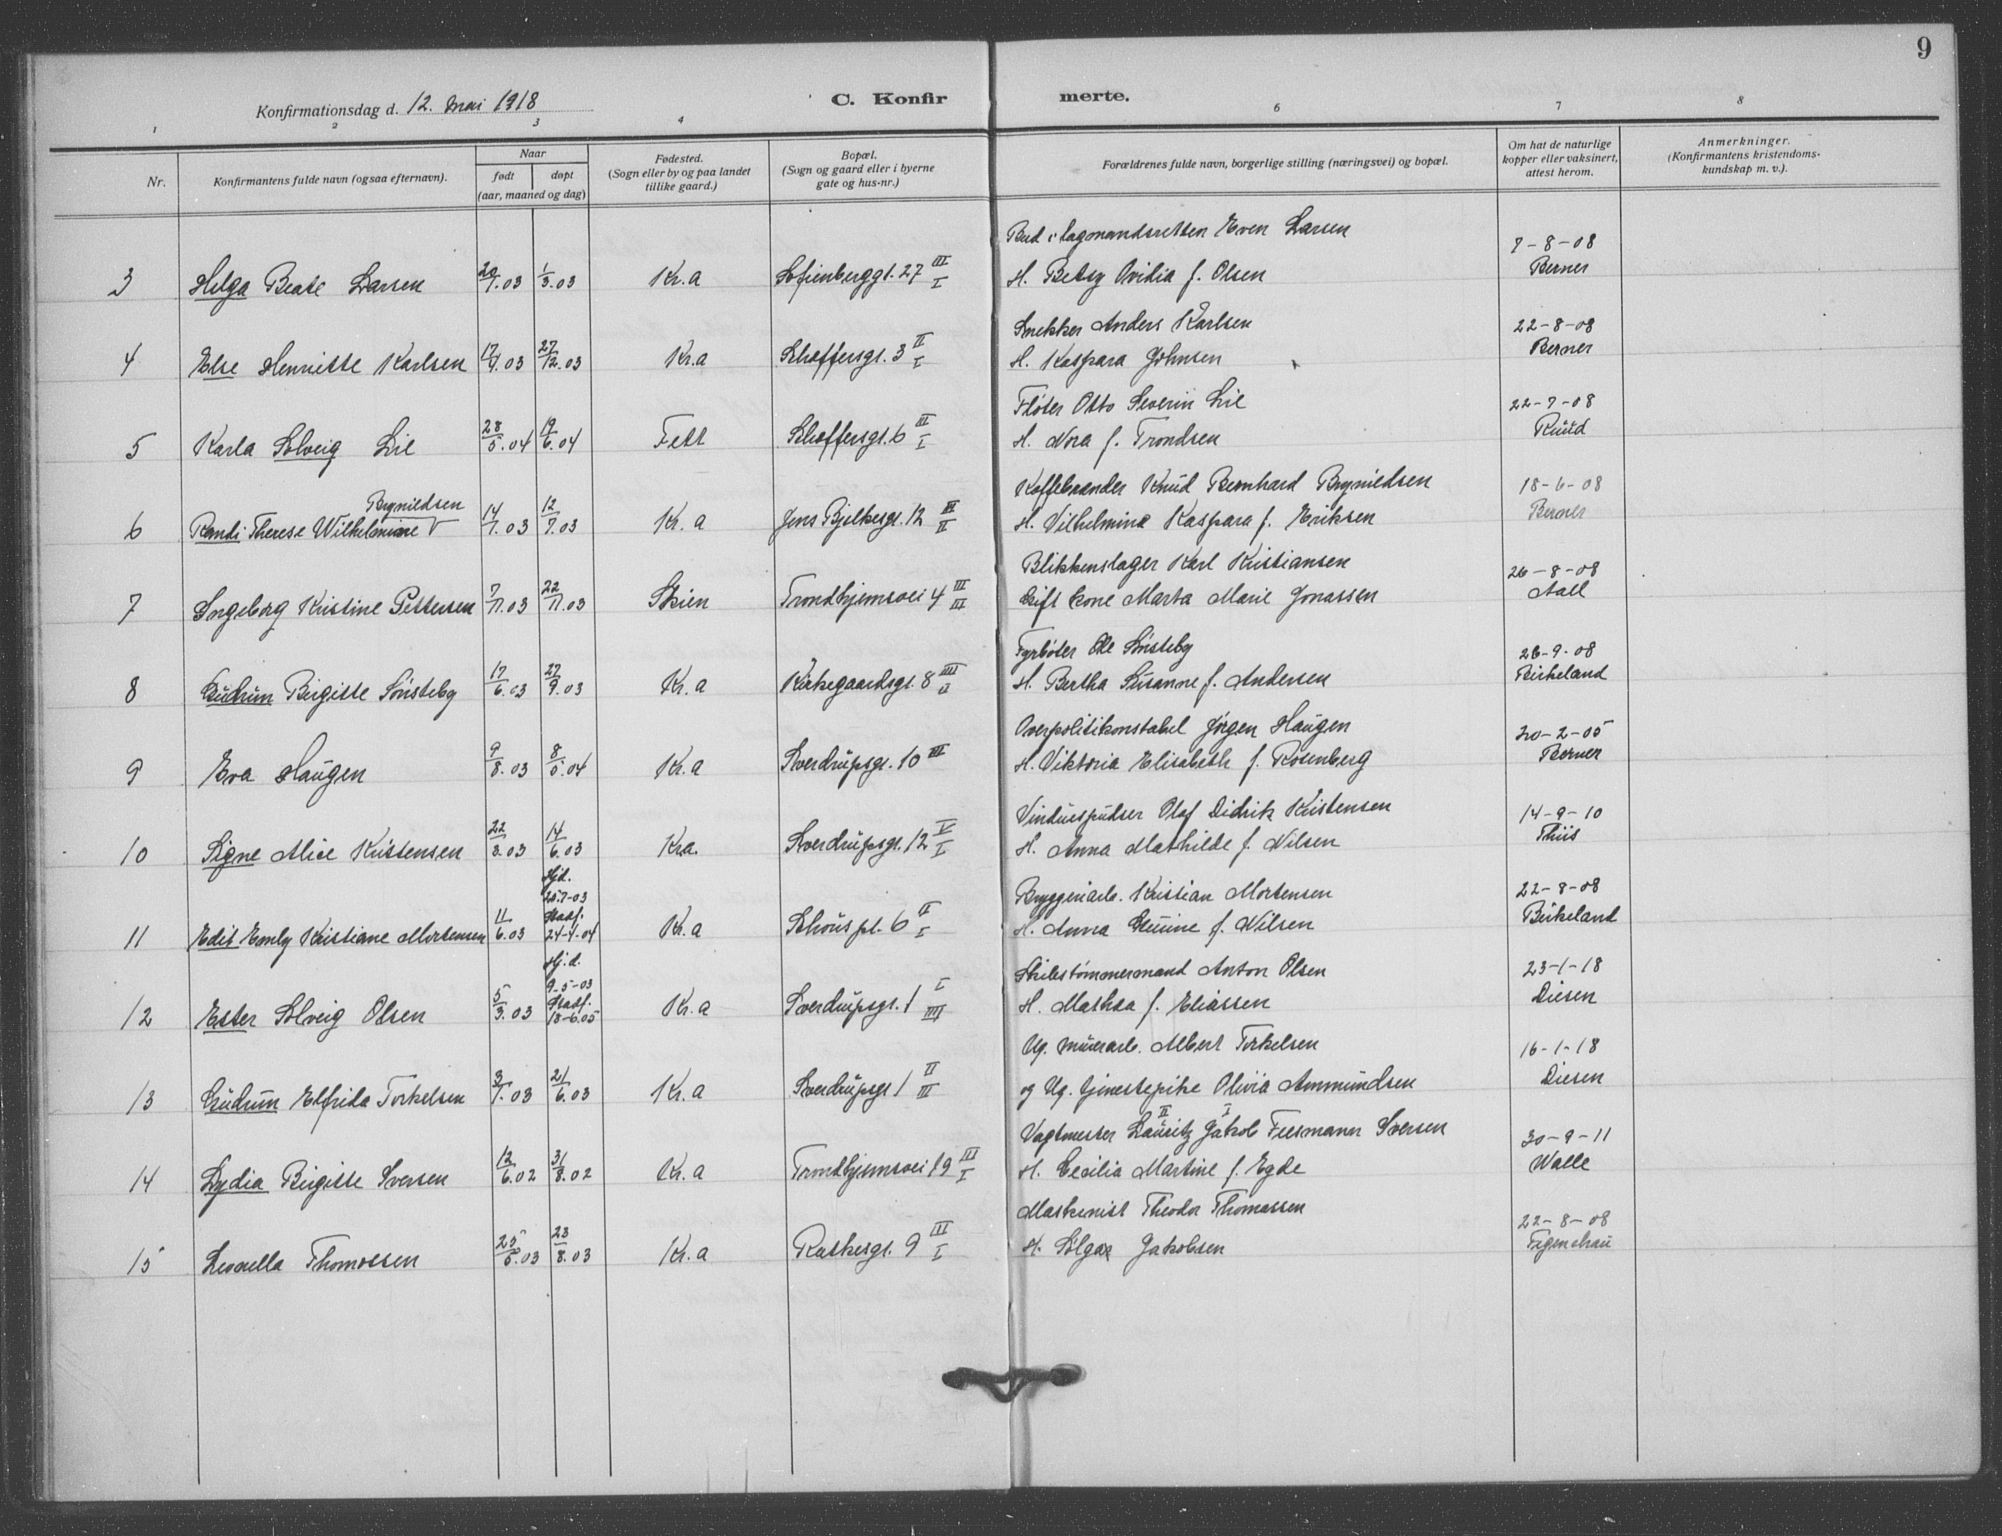 9
Konfirmationsdag d. 12. mai 1918
C. Konfir merte.
1 2 3 4 6 7 8
Nr.
Konfirmantens fulde navn (ogsaa efternavn).
Naar
født døpt
(aar, maaned og dag)
Fødested.
(Sogn eller by og paa landet
tillike gaard.)
Bopæl.
(Sogn og gaard eller i byerne
gate og hus-nr.)
Forældrenes fulde navn, borgerlige stilling (næringsvei) og bopæl.
Om hat de naturlige
kopper eller vaksinert,
attest herom.
Anmerkninger.
(Konfirmantens kristendoms-
kundskap m. v.).
Bud i lagmandsretten Even Larsen 7-8-08
3 Helga Beate Larsen 20/1.03 1/3.03 Kr.a Sofienberggt. 27 III/I H. Betsy Ovidia f. Olsen Berner
Snekker Anders Karlsen 22-8-08
4 Else Henriette Karlsen 27/12.03 Kr.a Schøffersgt. 3 II/I H. Kaspara Johnsen Berner
Fløter Otto Severin Lie 22-7-08
5 Karla Solveig Lie 28/5.04 19/6.04 Fett Schøffersgt. 6 III/I H. Nora f. Trondsen Ruud
Brynildsen Kaffebrænder Knud Bernhard Brynildsen 18-6-08
6 Randi Therese Wilhelmine V 14/1.03 12/7.03 Kr.a Jens Bjelkesgt. 12 H. Vilhelmine Kaspara f. Eriksen Berner
Blikkenslager Karl Kristiansen 26-8-08
7 Ingeborg Kristine Pettersen 7/11.03 22/11.03 Skien Trondhjemsvei 4 III/III Gift kone Marta Marie Jonassen Aall
Fyrbøter Ole Sønsteby 26-9-08
8 Gudrun Birgitte Sønsteby 17/6.03 27/9.03 Kr.a Kirkegaardsgt. 8 III/II H. Bertha Susanne f. Andersen Birkeland
Overpolitikonstabel Jørgen Haugen 20-2-05
9 Eva Haugen 9/8.03 8/5.04 Kr.a Sverdrupsgt. 10 III H. Viktoria Elisabeth f. Rosenberg Berner
Vinduespudser Olaf Didrik Kristensen 14-9-10
10 Signe Alice Kristensen 22/3.03 14/6.03 Kr.a. Sverdrupsgt. 12 V/I H. Anna Mathilde f. Nilsen Thiis
Hjd.
20-7-03 Bryggeriarb. Kristian Mortensen 22-8-08
Stadf.
11 Edit Emly Kristiane Mortensen 11/6.03 24-4-04 Kr.a Schous pl. 6 II/I H. Anna f. Nilsen Birkeland
Hj.d.
9-5-03 Skibstømmermand Anton Olsen 23-1-18
Stadf.
12 Ester Solveig Olsen 5/3.03 18-6.05 Kr.a Sverdrupsgt. 1 I/III H. Mathea f. Eliassen Diesen
Ug. murarb. Albert Torkelsen 16-1-18
13 Gudrun Elfrida Torkelsen 3/1.03 21/6.03 Kr.a Sverdrupsgt 1 II/III og Ug. tjenestepike Olivia Ammundsen Diesen
II I
Vagtmester Lauritz Jakob Sversen 30-9-11
14 Lydia Birgitte Sversen 12/6.02 31/8.02 Kr.a Trondhjemsvei 19 III/I H. Cecilia Martine f. Egde Walle
Maskinist Theodor Thomassen 22-8-08
15 Leonella Thomassen 25/5.03 23/8.03 Kr.a Rathkesgt. 9 III/I H. Jakobsen Figenschau